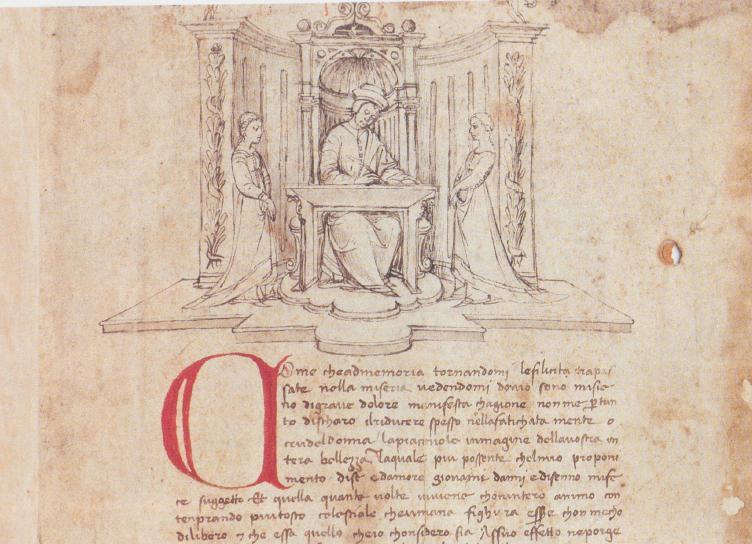 Come cheadmemoria tornandomi lefilicita trapas
sate nella miseria vedendomi dovio sono misie
no digrave dolore manifesta chagione nonme p tan
to discharo ilriducere spesso nellafatichata mente o
crudel donna lapiacievole inmagine dellavostra in
tera bellezza laquale piu possente chelmio proponi
mento dise edamore giovane danni edisenno mife
ce suggetto Et quella quante volte miviene chonintero animo con
tenprando piutosto celestiale cheumana fighura esse chon mecho
dilibero 7 che essa quello cheio chonsidero sia Assuo effetto neporge